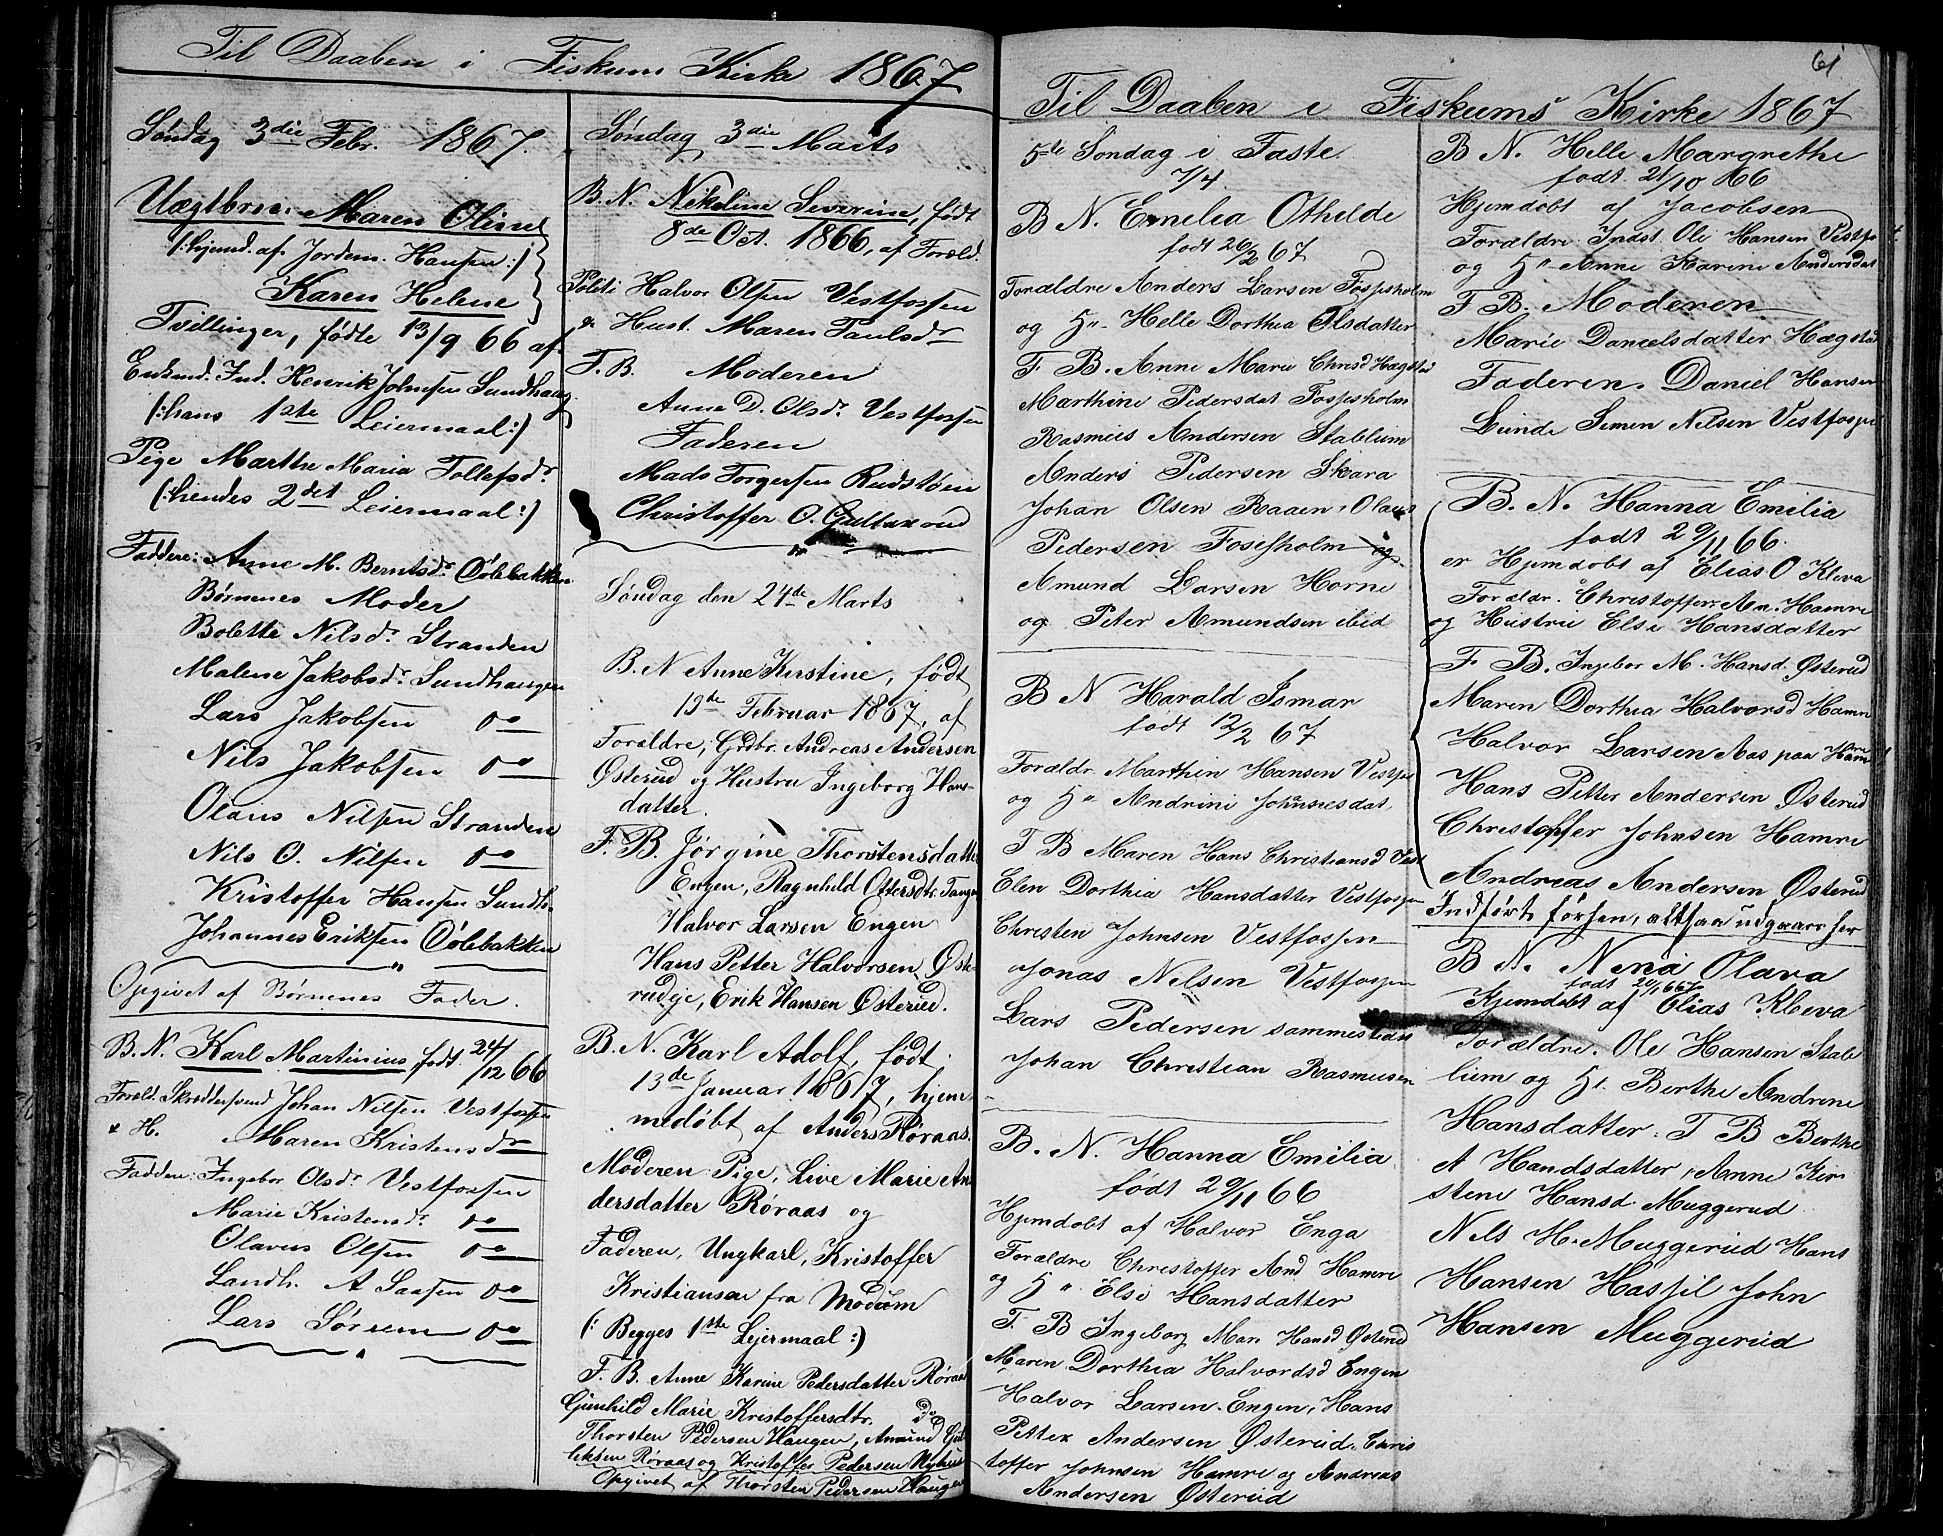 Til Daaben i Fiskum Kirke 1867
Søndag 3die Febr. 1867.
Uægtbrn: Maren Oline
(:hjemd. af Jordem. Hansen:)
Karen Helene
Tvillinger, fødte 13/9 66 af
Enkmd. Ind. Henrik Johnsen Sundhaug
(:hans 1ste Leiermaal:)
Pige Marthe Maria Tollefsdr
(:hendes 2det Leiermaal:)
Faddere: Anne M. Berntsdr. Dølebakken
Børnenes Moder
Bolette Nilsdr. Stranden
Malene Jakobsdr. Sundhaugen
Lars Jakobsen do
Nils Jakobsen do
Olaus Nilsen Stranden
Nils O. Nilsen do
Kristoffer Hansen Sundh.
Johannes Eriksen Dølebakken
Opgivet af Børnenes Fader.
B. N. Karl Martinius, født 24/12 66
Foræld. Skræddersvend Johan Nilsen Vestfossen
& H. Maren Kristensdr
Faddere: Ingebor Olsdr. Vestfossen
Marie Kristensdr. do
Olavus Olsen do
Landh. A Saasen do
Lars Sørsem do
Søndag 3die Marts
B. N. Nikoline Severine, født
8de Oct. 1866, af Foræld.
Politi Halvor Olsen Vestfossen
& Hust. Maren Paulsdr
F. B. Moderen
Anne D. Olsdr. Vestfossen
Faderen
Mads Torgersen Rudstøen
Christoffer O.
Søndag den 24de Marts
B. N Anne Kirstine, født
13de Februar 1867, af
Forældre, Grdbr. Andreas Andersen
Østerud og Hustru Ingeborg Hans-
datter.
F. B. Jørgine Thorstensdatter
Engen, Ragnhild Ottersdtr. Tangen
Halvor Larsen Engen
Hans Petter Halvorsen Øst-
rudeje, Erik Hansen Østerud.
B. N. Karl Adolf, født
13de Januar 1867, hjem-
medøbt af Anders Røraas.
Moderen Pige, Live Marie An-
dersdatter Røraas og
Faderen, Ungkarl, Kristoffer
Kristiansen fra Modum
(: Begges 1ste Lejermaal :)
F. B. Anne Karine Pedersdatter Røraas
Gunhild Marie Kristoffersdtr. do
Thorsten Pedersen Haugen, Amund Gul-
liksen Røraas og Kristoffer Pedersen Nyhus
Opgivet af Thorsten Pedersen Haugen
61
Til Daaben i Fiskums Kirke 1867
5te Søndag i Faste
7/4
B N. Emelia Othilde
født 26/2 67
Forældre Anders Larsen Fossesholm
og H" Helle Dorthea Olsdatter
F B. Anne Marie Chrisd Hægstad
Marthine Pedersdat Fossesholm
Rasmus Andersen Stablum
Anders Pedersen Skara
Johan Olsen Raaen, Olaus
Pedersen Fosesholm og
Amund Larsen Horne
og Peter Amundsen ibid
B N Harald Ismar
født 12/2 67
Forældr. Marthin Hansen Vestfos
og H" Andrine Johannesdat
F B Maren Hans Christiansd Vest
Elen Dorthia Hansdatter Vestfossen
Christen Johnsen Vestfossen
Jonas Nelsen Vestfossen
Lars Pedersen sammested
Johan Christian Rasmusen
B. N. Hanna Emilia
født 29/11 66
Hjemdøbt af Halvor Enga
Forældre Christoffer And Hamre
og H" Elsi Hansdatter
F. B Ingeborg Mar. Hansd Østerud
Maren Dorthea Halvordsd Engen
Halvor Larsen Engen, Hans
Petter Andersen Østerud. Chris
toffer Johnsen Hamre og Andreas
Andersen Østerud
B N. Helle Margrethe
født 21/10 66
Hjemdøbt af Jacobsen
Forældre Indst Ole Hansen Vestfo
og H" Anne Karine Andersdat
F B. Moderen
Marie Danielsdatter Hægstad
Faderen. Daniel Hansen
Lunde Simen Nilsen Vestfossen
B. N. Hanna Emilia
født 29/11 66.
er Hjemdøbt af Elias O Kleva
Forældr. Christoffer An. Hamre
og Hustru Elsi Hansdatter
F. B. Ingebor M. Hansd. Østerud
Maren Dorthea Halvorsd Hamre
Halvor Larsen Aas paa Hamre
Hans Petter Andersen Østerud
Christoffer Johnsen Hamre
Andreas Andersen Østerud
Indført forhen, altsaa udgaar her
B N. Nena Olava
født 20/1 667
Hjemdøbt af Elias Kleva
Forældre. Ole Hansen Stab
lum og H. Berthe Andrine
Hansdatter. F B Berthe
A Handsdatter, Anne Kir
stene Hansd. Muggerud
Nels H. Muggerud Hans
Hansen Hassil John
Hansen Muggerud